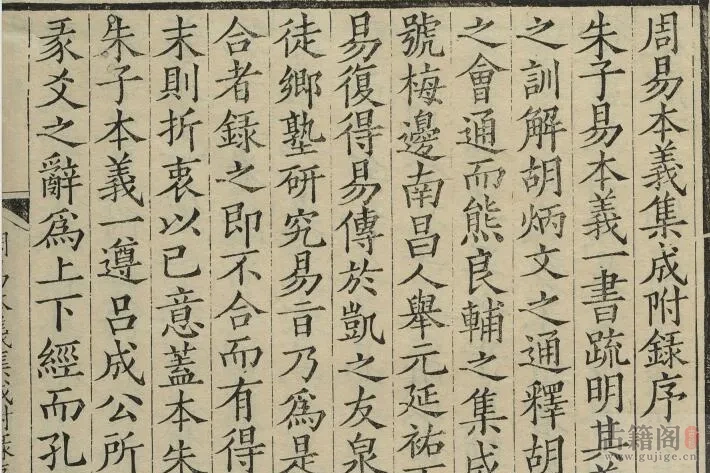 周易本義集成附錄序
朱子易本義一書疏明其義
之訓解胡炳文之通釋胡
之會通而熊良輔之集成
號梅邊南昌人舉元延祐
易復得易傳於凱之友泉
徒鄉塾研究易旨乃爲是
合者錄之即不合而有得
末則折衷以已意蓋本朱
朱子本義一遵呂成公所
彖爻之辭爲上下經而孔
古籍阁
www.gujige.cn